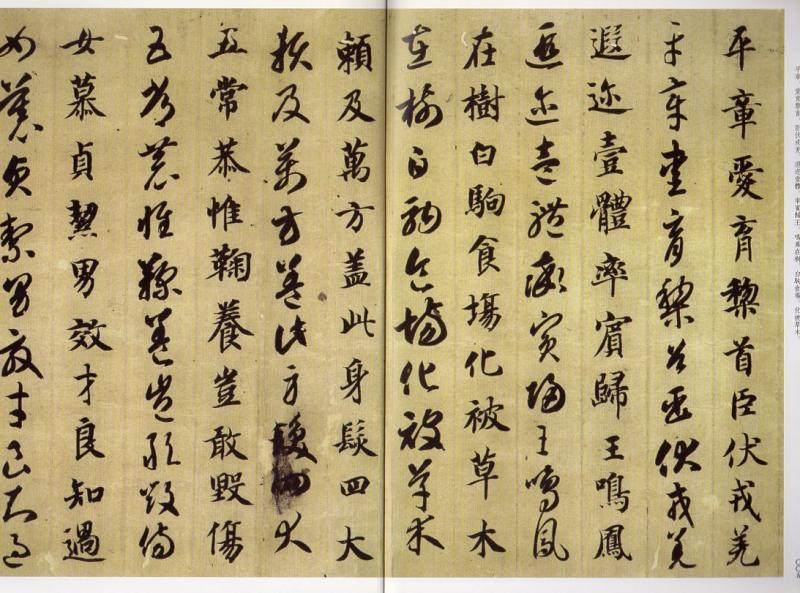 平章愛育黎首臣伏戎羌
平章愛育黎首臣伏戎羌
遐迩壹體率賓歸王鳴鳳
遐迩壹體率賓歸王鳴鳳
在樹白駒食塲化被草木
在樹白駒食場化被草木
賴及萬方盖此身髮四大
賴及萬方盖此身髮四大
五常恭惟鞠養豈敢毀傷
五常恭惟鞠養豈敢毀傷
女慕貞絜男效才良知過
女慕貞絜男效才良知過